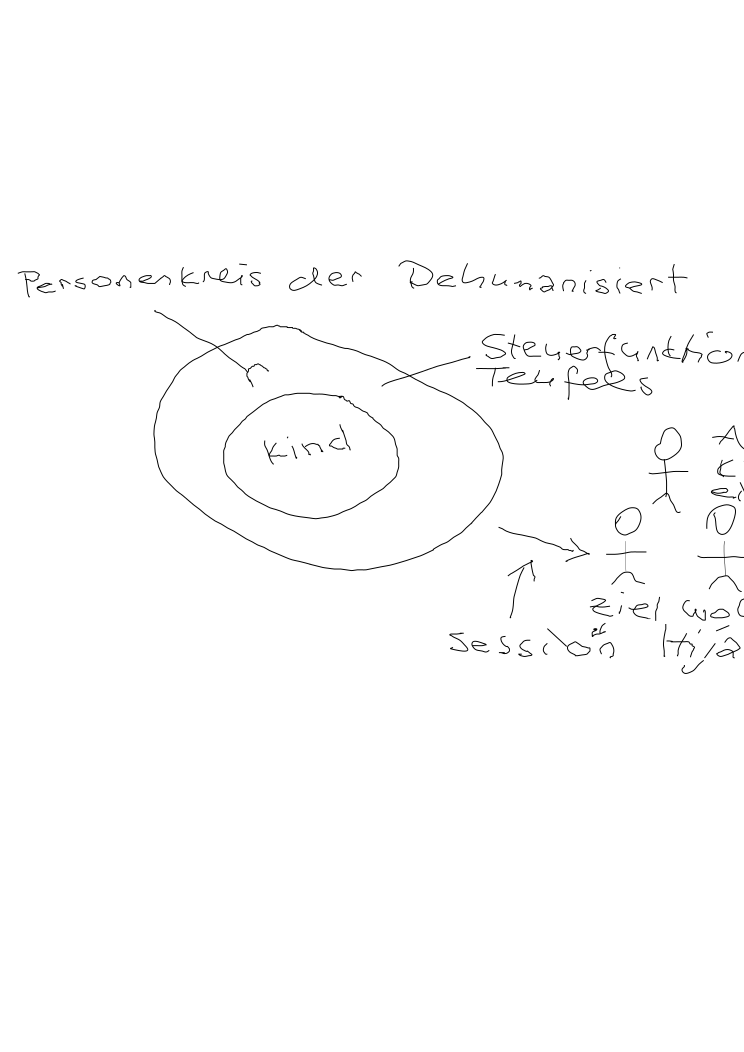 Personenkreis der Dehumanisiert
Steuerfunktion
Teufels
Kind
A
K
ei
ziel wol
Session Hija